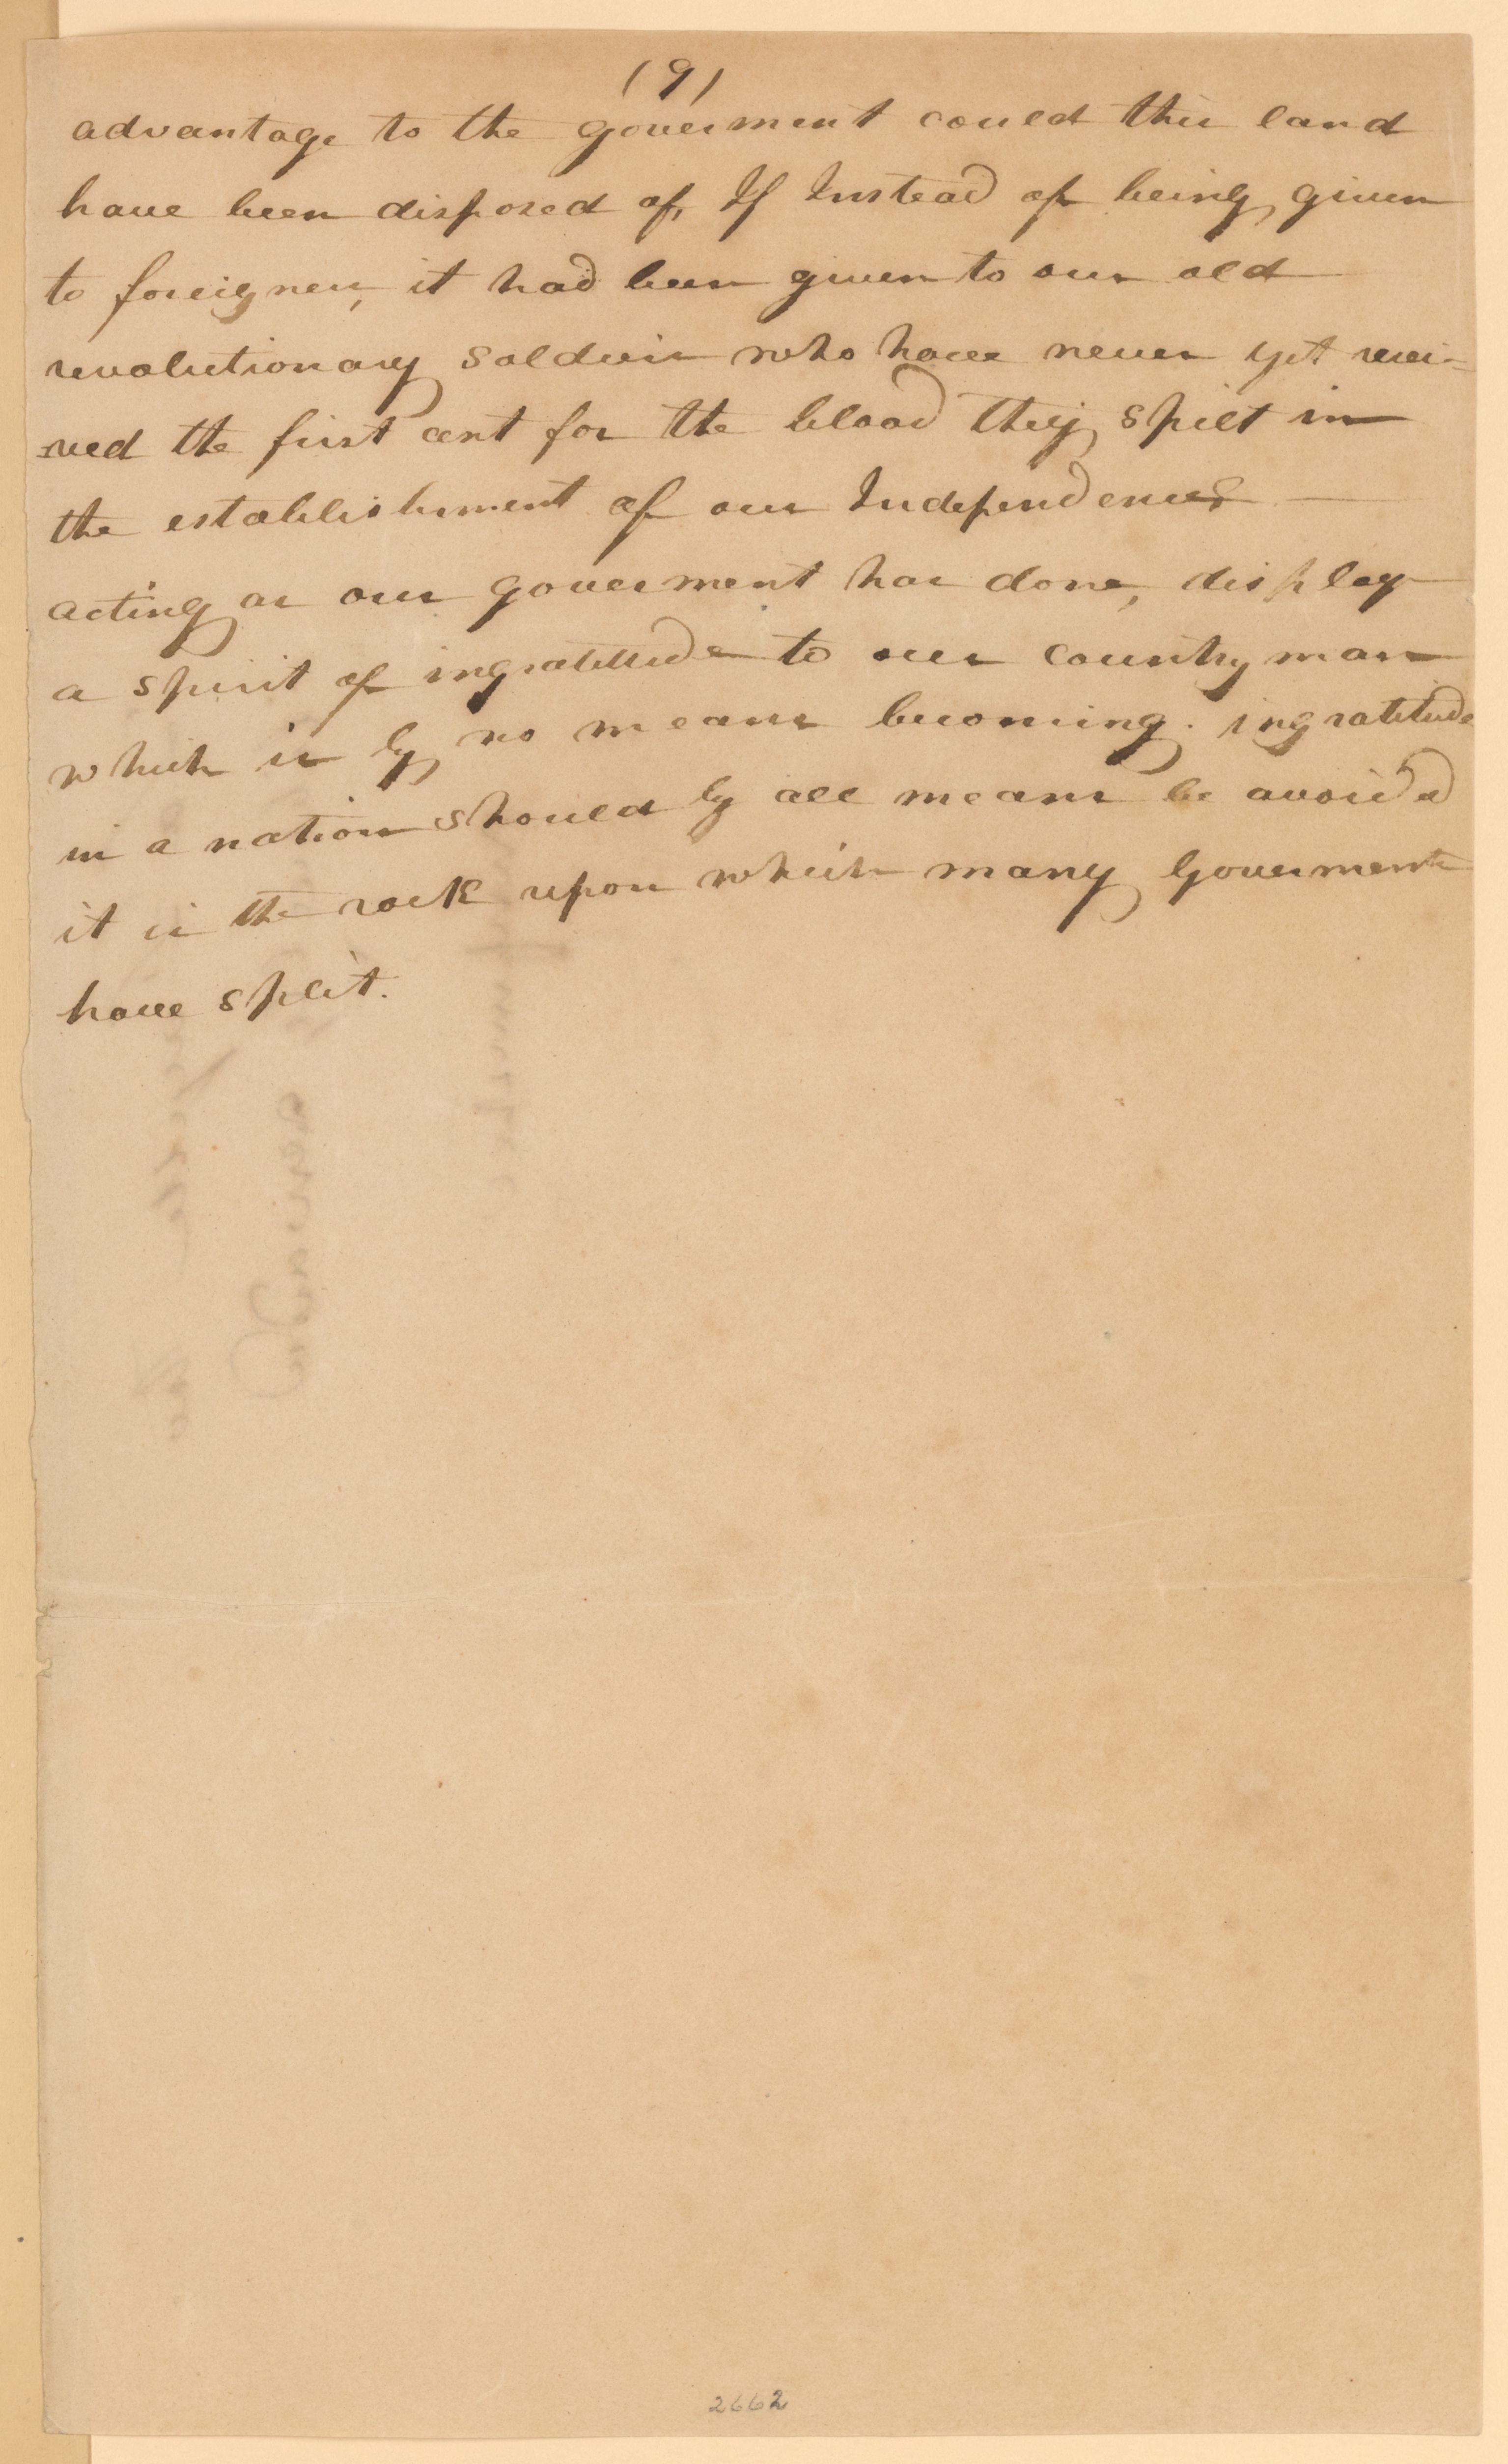 (9)
advantage to the goverment could this land
have been disposed of, If Instead of being given
to foreigners, it had been given to our old
revolutionary soldiers who have never yet recei=
=ved the first cent for the blood they spilt in
the establishment of our Independence —
acting as our goverment has done, display
a spirit of ingratitude to our countryman
which is by no means becoming. ingratitude
in a nation should by all means be avoided
it is the rock upon which many Goverments
have split.
2662